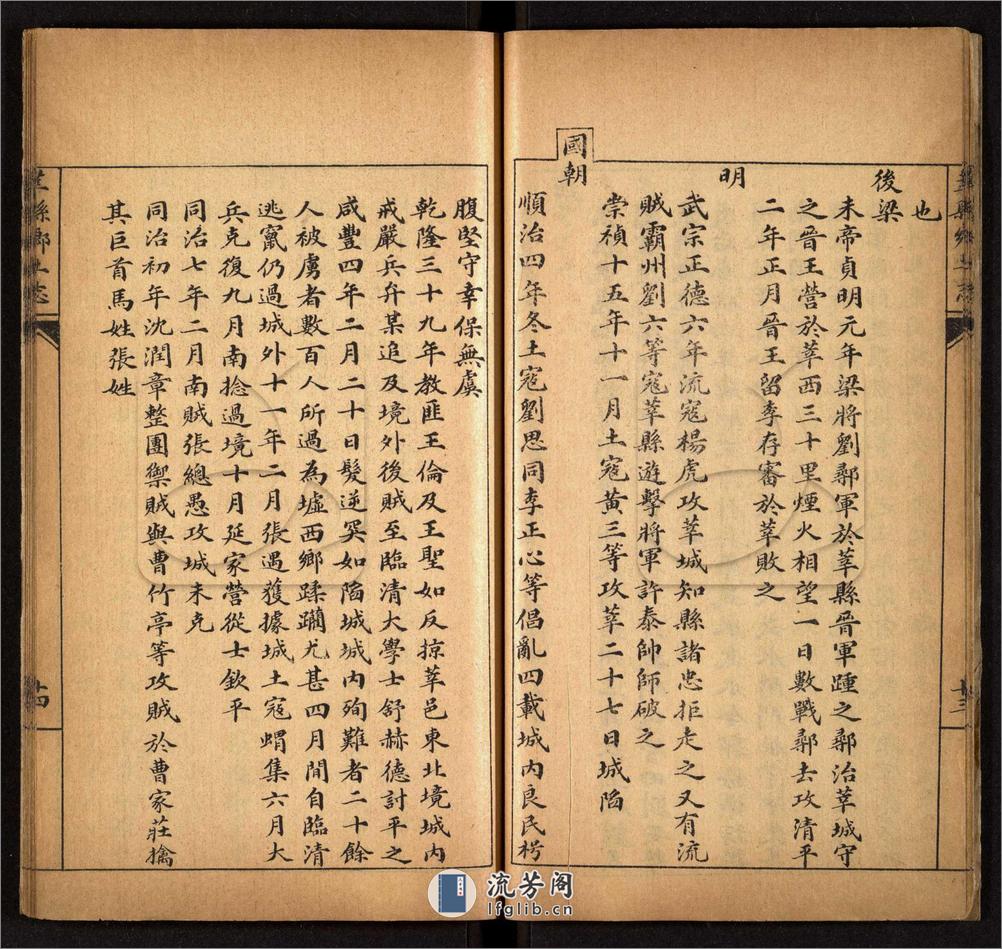 也
後梁
末帝貞明元年梁將劉鄩軍於莘縣晉軍踵之鄩治莘城守
之晉王營於莘西三十里煙火相望一日數戰鄩去攻清平
二年正月晉王留李存審於莘敗之
明
武宗正德六年流寇楊虎攻莘城知縣諸忠拒走之又有流
賊霸州劉六等寇莘縣遊擊將軍許泰帥師破之
崇禎十五年十一月土寇黃三等攻莘二十七日城陷
國朝
順治四年冬土寇劉思同李正心等倡亂四載城內良民枵
腹堅守幸保無虞
乾隆三十九年教匪王倫及王聖如反掠莘邑東北境城內
戒嚴兵弁某追及境外後賊至臨清大學士舒赫德討平之
咸豐四年二月二十日髮逆突如陷城城內殉難者二十餘
人被虜者數百人所過為墟西鄉蹂躪尤甚四月間自臨清
逃竄仍過城外十一年二月張遇獲據城土寇蝟集六月大
兵克復九月南捻過境十月延家營從士欽平
同治七年二月南賊張總愚攻城未克
同治初年沈潤章整團禦賊與曹竹亭等攻賊於曹家莊擒
其巨首馬姓張姓
縣鄉土志
十四
流芳阁
lfglib.cn